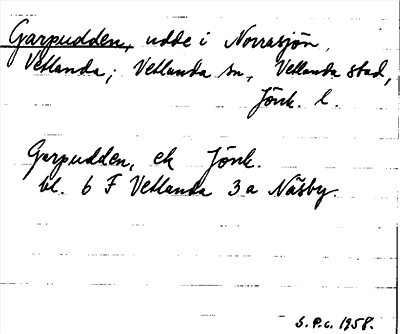 Garpudden, udde i Norrasjön,
Vetlanda; Vetlanda sn, Vetlanda stad,
Jönk. l.
Garpudden, ek Jönk.
bl. 6 F Vetlanda 3 a Näsby.
S.P.c. 1958.